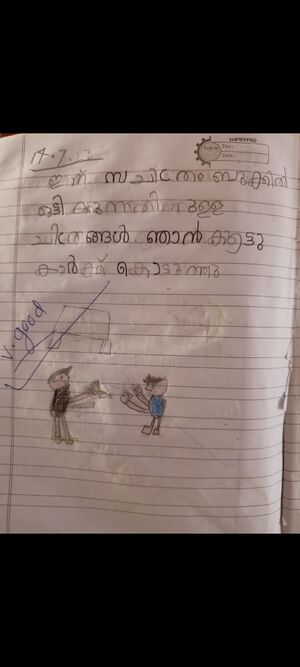 17.7.
ഇന്ന് സചിത്ര ബുക്കിൽ
ഒട്ടിക്കുന്നതിനുള്ള
ചിത്രങ്ങൾ ഞാൻ കൂട്ടു
കാർക്ക് കൊടുത്തു
v.good
Date: